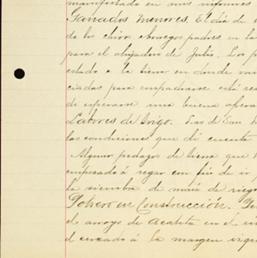 manifestado en mis informes
Ganados menores. El día de
de los chivos borregos padres en la
para el ahijadero de Julio. Los p
estado a la tierra en donde van
ciadas para empadrarse está
de esperarse una buena opera
Labores de trigo. Las de San
las condiciones que di cuenta
Algunos pedazos de tierra que
empezado á regar con fin de ir
la siembra de maíz de riego
Potrero en Construcción. De
el arroyo de Acatita en el
el cercado á la margen izqui